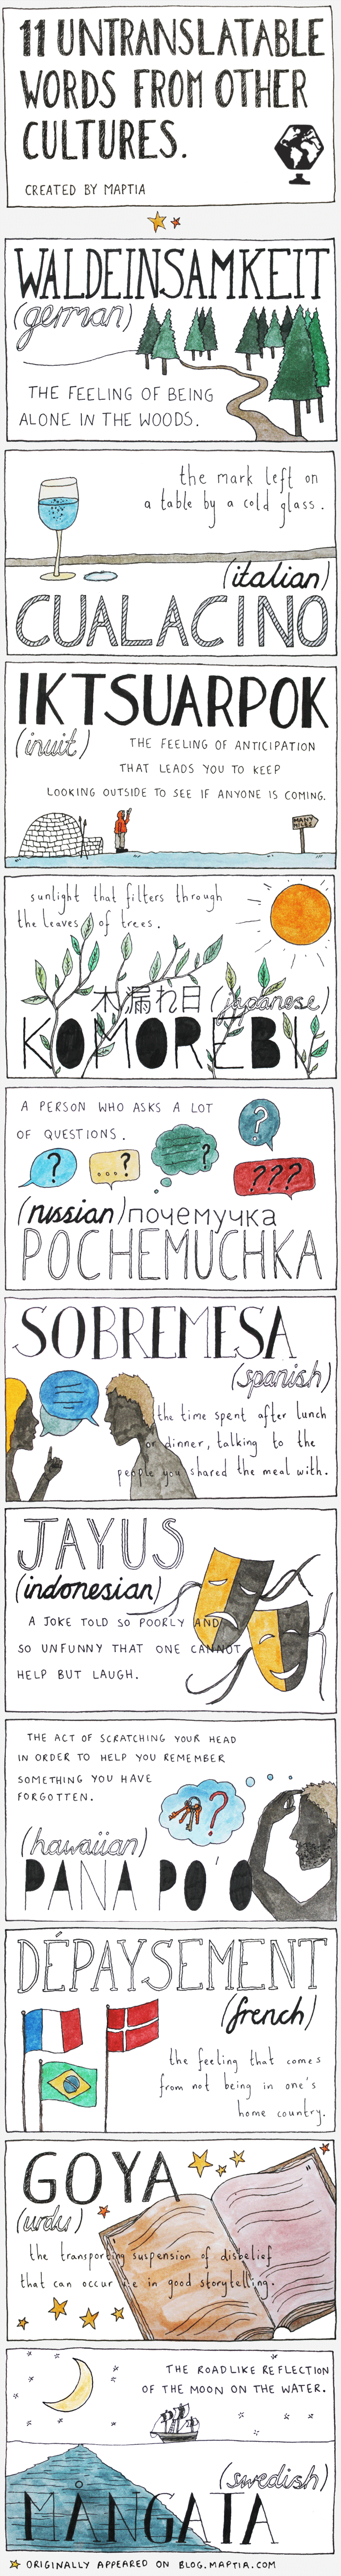 11 UNTRANSLATABLE
WORDS FROM OTHER
CULTURES.
CREATED BY MAPTIA
WALDEINSAMKEIT
(german)
THE FEELING OF BEING
ALONE IN THE WOODS.
the mark left on
a table by a cold glass.
(italian)
CUALACINO
IKTSUARPOK
(inuit)
THE FEELING OF ANTICIPATION
THAT LEADS YOU TO KEEP
LOOKING OUTSIDE TO SEE IF ANYONE IS COMING.
MANY MILES
sunlight that filters through
the leaves of trees.
木漏れ日 (japanese)
KOMOREBI
A PERSON WHO ASKS A LOT
OF QUESTIONS.
?
?
...?
?
???
(russian) почемучка
POCHEMUCHKA
SOBREMESA
(spanish)
the time spent after lunch
or dinner, talking to the
people you shared the meal with.
JAYUS
(indonesian)
A JOKE TOLD SO POORLY AND
SO UNFUNNY THAT ONE CANNOT
HELP BUT LAUGH.
THE ACT OF SCRATCHING YOUR HEAD
IN ORDER TO HELP YOU REMEMBER
SOMETHING YOU HAVE
FORGOTTEN.
?
(hawaiian)
PANA PO'O
DÉPAYSEMENT
(french)
the feeling that comes
from not being in one's
home country.
GOYA
(urdu)
the transporting suspension of disbelief
that can occur in good storytelling.
THE ROADLIKE REFLECTION
OF THE MOON ON THE WATER.
(swedish)
MÅNGATA
ORIGINALLY APPEARED ON BLOG.MAPTIA.COM